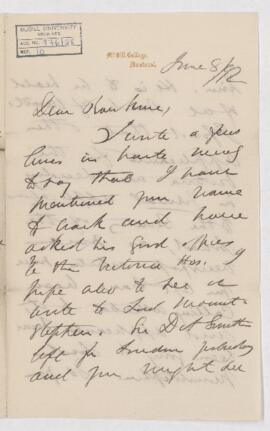 McGILL UNIVERSITY
ARCHIVES
ACC. NO.
REF.
McGill College,
Montreal.
June 8/
Dear
I write a few
lines in haste merely
to say that I have
mentioned your name
to and have
asked his good offices
in the Victoria Hos. I
hope also to see or
write to Lord Mount-
stephen. Sir D A Smith
left for London yesterday
and you might see